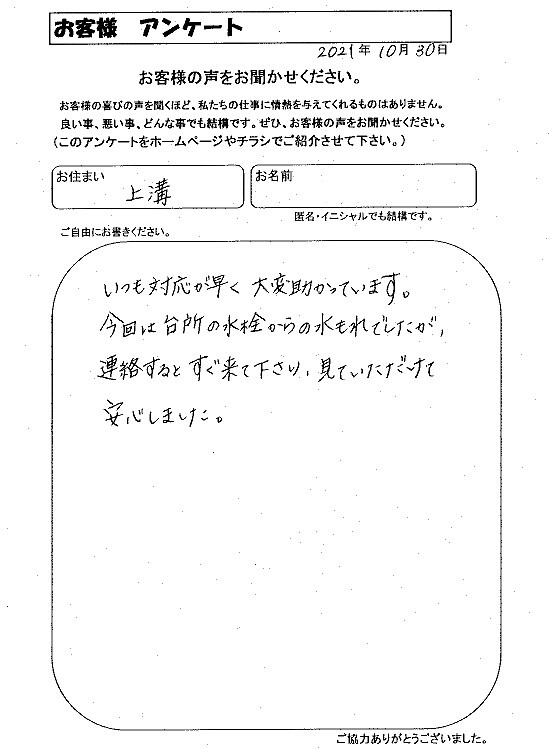 お客様 アンケート
2021年 10月 30日
お客様の声をお聞かせください。
お客様の喜びの声を聞くほど、私たちの仕事に情熱を与えてくれるものはありません。
良い事、悪い事、どんな事でも結構です。ぜひ、お客様の声をお聞かせください。
(このアンケートをホームページやチラシでご紹介させて下さい。)
お住まい 上溝
お名前
匿名・イニシャルでも結構です。
ご自由にお書きください。
いつも対応が早く 大変助かっています。
今回は台所の水栓からの水もれでしたが、
連絡するとすぐ来て下さり、見ていただけて
安心しました。
ご協力ありがとうございました。